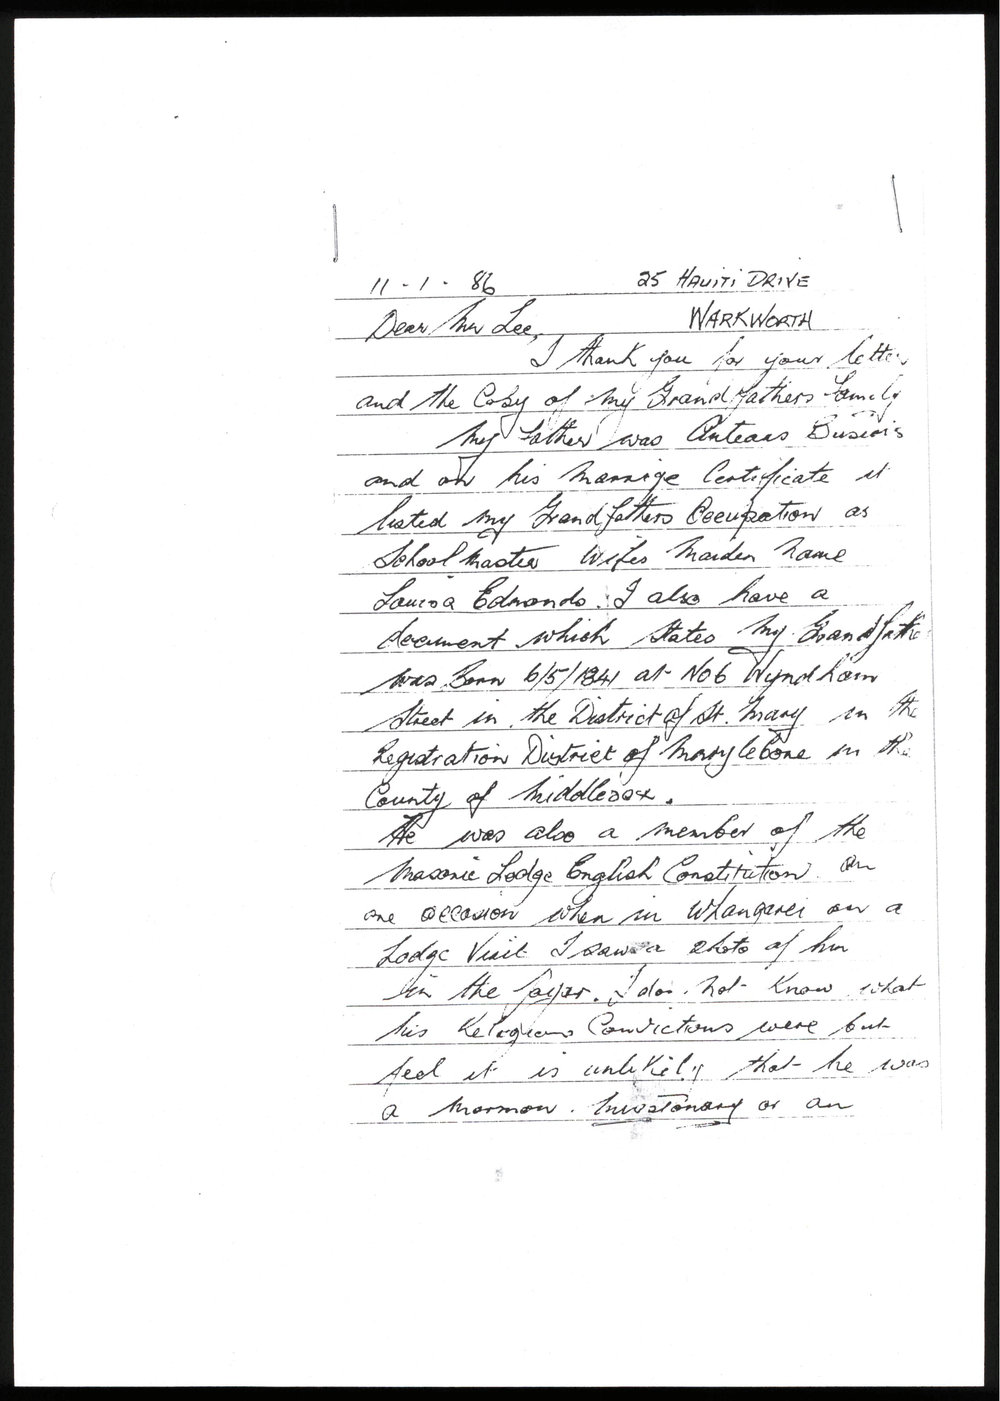 11 - 1 - 86 25 HAUITI DRIVE
Dear Mr Lee, WARKWORTH
I thank you for your letter
and the Copy of my Grandfathers Family
My Father was
and on his marrige Certificate it
listed my Grandfathers Occupation as
School Master Wifes Maiden Name
Louisa Edmonds. I also have a
document which States my Grandfathe
was Born 6/5/1841 at No 6 Wyndham
Street in the District of St. Mary in the
Registration District of Marylebone in the
County of Middlesex.
He was also a member of the
Masonic Lodge English Constitution. On
one occasion when in Whangarei on a
Lodge Visit I saw a photo of him
in the foyer. I do not Know what
his Religious Convictions were but
feel it is unlikely that he was
a Mormon. Missionary or an